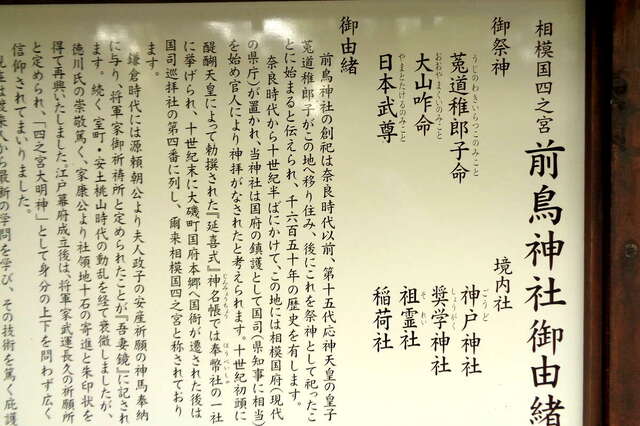 相模国四之宮 前鳥神社御由緒
御祭神
菟道稚郎子命
うじのわきいらつこのみこと
大山咋命
おおやまくいのみこと
日本武尊
やまとたけるのみこと
境内社
神戸神社
ごうど
奨学神社
しょうがく
祖霊社
それい
稲荷社
御由緒
前鳥神社の創祀は奈良時代以前、第十五代応神天皇の皇子
菟道稚郎子がこの地へ移り住み、後にこれを祭神として祀ったこ
とに始まると伝えられ、千六百五十年の歴史を有します。
奈良時代から十世紀半ばにかけて、この地には相模国府(現代
の県庁)が置かれ、当神社は国府の鎮護として国司(県知事に相当)
を始め官人により神拝がなされたと考えられます。十世紀初頭に
醍醐天皇によって勅撰された『延喜式』神名帳では奉幣社の一社
じんみょうちょう
ほうべいしゃ
に挙げられ、十世紀末に大磯町国府本郷へ国衙が遷された後は
国司巡拝社の第四番に列し、爾来相模国四之宮と称されており
ます。
鎌倉時代には源頼朝公より夫人政子の安産祈願の神馬奉納
に与り、将軍家御祈祷所と定められたことが『吾妻鏡』に記され
ます。続く室町・安土桃山時代の動乱を経て衰微しましたが、
徳川氏の崇敬篤く、家康公より社領地十石の寄進と朱印状を
得て再興いたしました。江戸幕府成立後は、将軍家武運長久の祈願所
と定められ、「四之宮大明神」として身分の上下を問わず広く
信仰されてまいりました。
渡来人から最新の学問を学び、その技術を篤く庇護